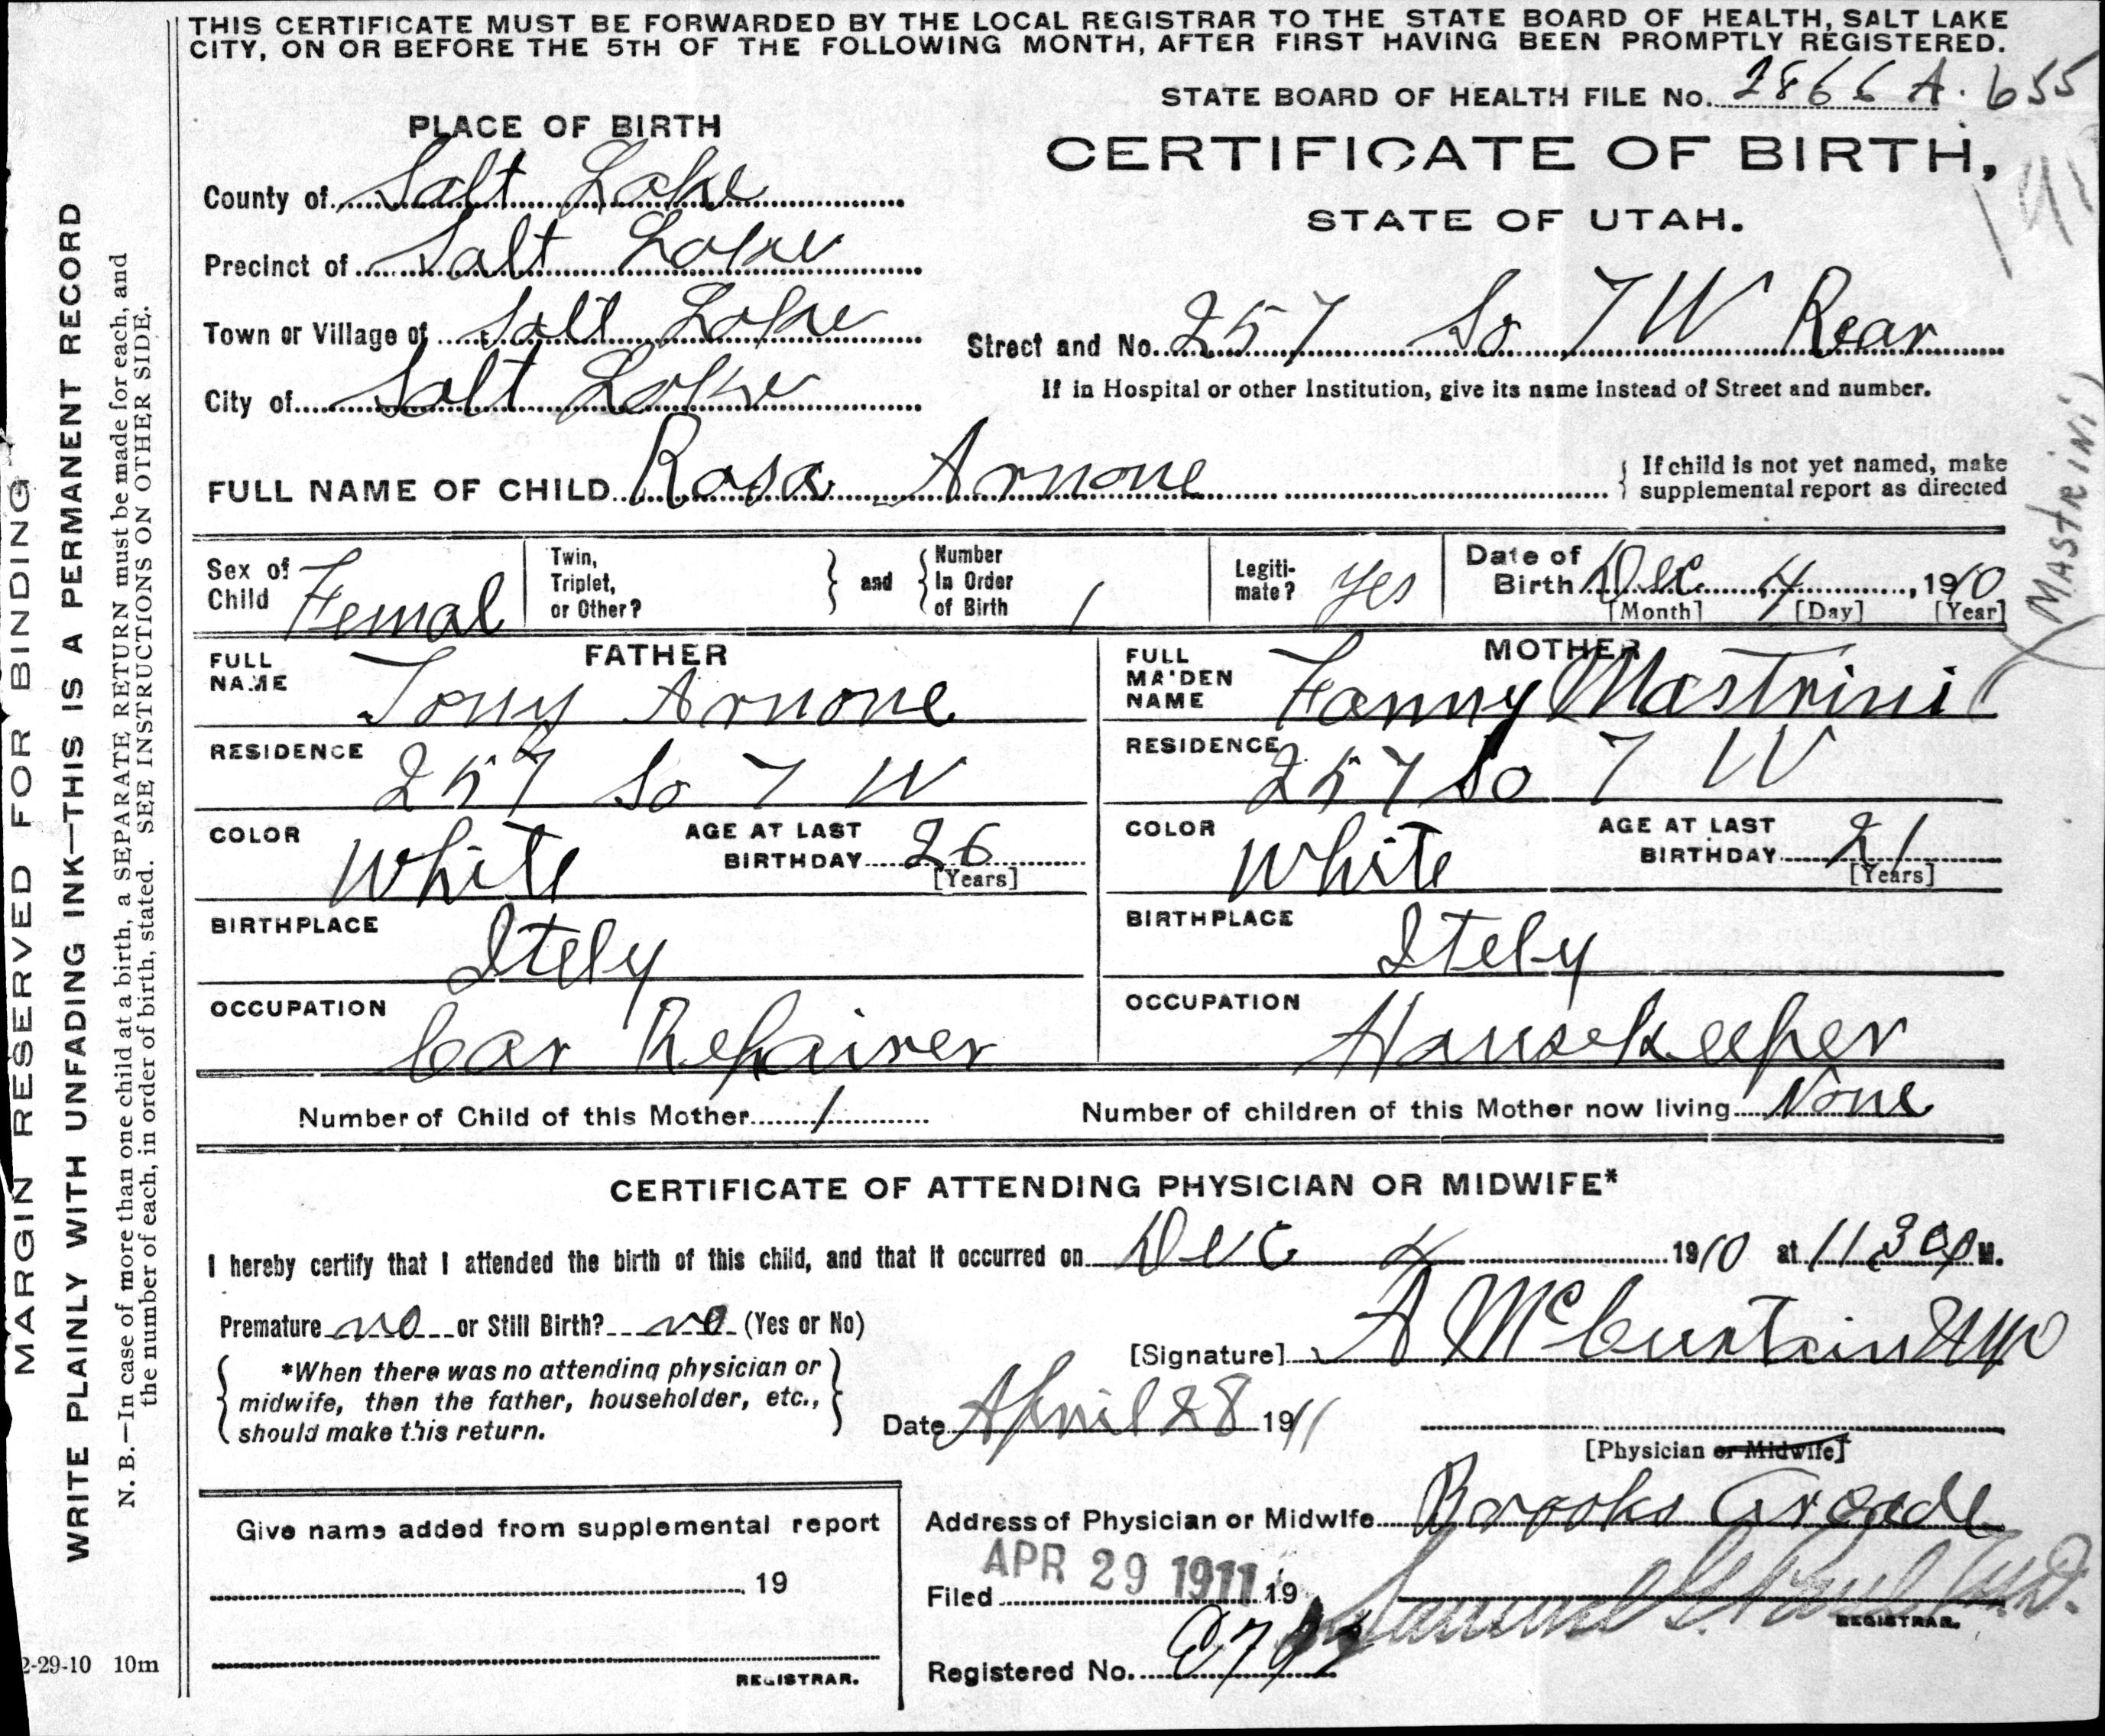 THIS CERTIFICATE MUST BE FORWARDED BY THE LOCAL REGISTRAR TO THE STATE BOARD OF HEALTH, SALT LAKE
CITY, ON OR BEFORE THE 5TH OF THE FOLLOWING MONTH, AFTER FIRST HAVING BEEN PROMPTLY REGISTERED.
STATE BOARD OF HEALTH FILE No. 2866 A. 655
PLACE OF BIRTH
CERTIFICATE OF BIRTH,
STATE OF UTAH.
County of Salt Lake
Precinct of Salt Lake
Town or Village of Salt Lake
Street and No. 257 So 7 W Rear
If in Hospital or other Institution, give its name instead of Street and number.
City of Salt Lake
FULL NAME OF CHILD Rosa Arnone
If child is not yet named, make
supplemental report as directed
Sex of Child Femal
Twin, Triplet, or Other?
and Number In Order of Birth 1
Legiti-mate? Yes
Date of Birth Dec 4, 1910
[Month] [Day] [Year]
FATHER
FULL NAME Tony Arnone
RESIDENCE 257 So 7 W
COLOR White
AGE AT LAST BIRTHDAY 26
[Years]
BIRTHPLACE Itely
OCCUPATION Car Repairer
MOTHER
FULL MAIDEN NAME Fanny Mastrini
(MASTRINI)
RESIDENCE 257 So 7 W
COLOR White
AGE AT LAST BIRTHDAY 21
[Years]
BIRTHPLACE Itely
OCCUPATION Housekeeper
Number of Child of this Mother 1
Number of children of this Mother now living None
CERTIFICATE OF ATTENDING PHYSICIAN OR MIDWIFE*
I hereby certify that I attended the birth of this child, and that it occurred on Dec 4 1910 at 11 30 P M.
Premature no or Still Birth? no (Yes or No)
[Signature] A McCurtain MD
*When there was no attending physician or
midwife, then the father, householder, etc.,
should make this return.
Date April 28 1911
[Physician or Midwife]
Address of Physician or Midwife Brooks Arcade
Give name added from supplemental report
19
REGISTRAR.
Filed APR 29 1911 19
Samuel G. Paul M.D.
REGISTRAR.
Registered No.
MARGIN RESERVED FOR BINDING
WRITE PLAINLY WITH UNFADING INK—THIS IS A PERMANENT RECORD
N. B.—In case of more than one child at a birth, a SEPARATE RETURN must be made for each, and
the number of each, in order of birth, stated. SEE INSTRUCTIONS ON OTHER SIDE.
2-29-10 10m